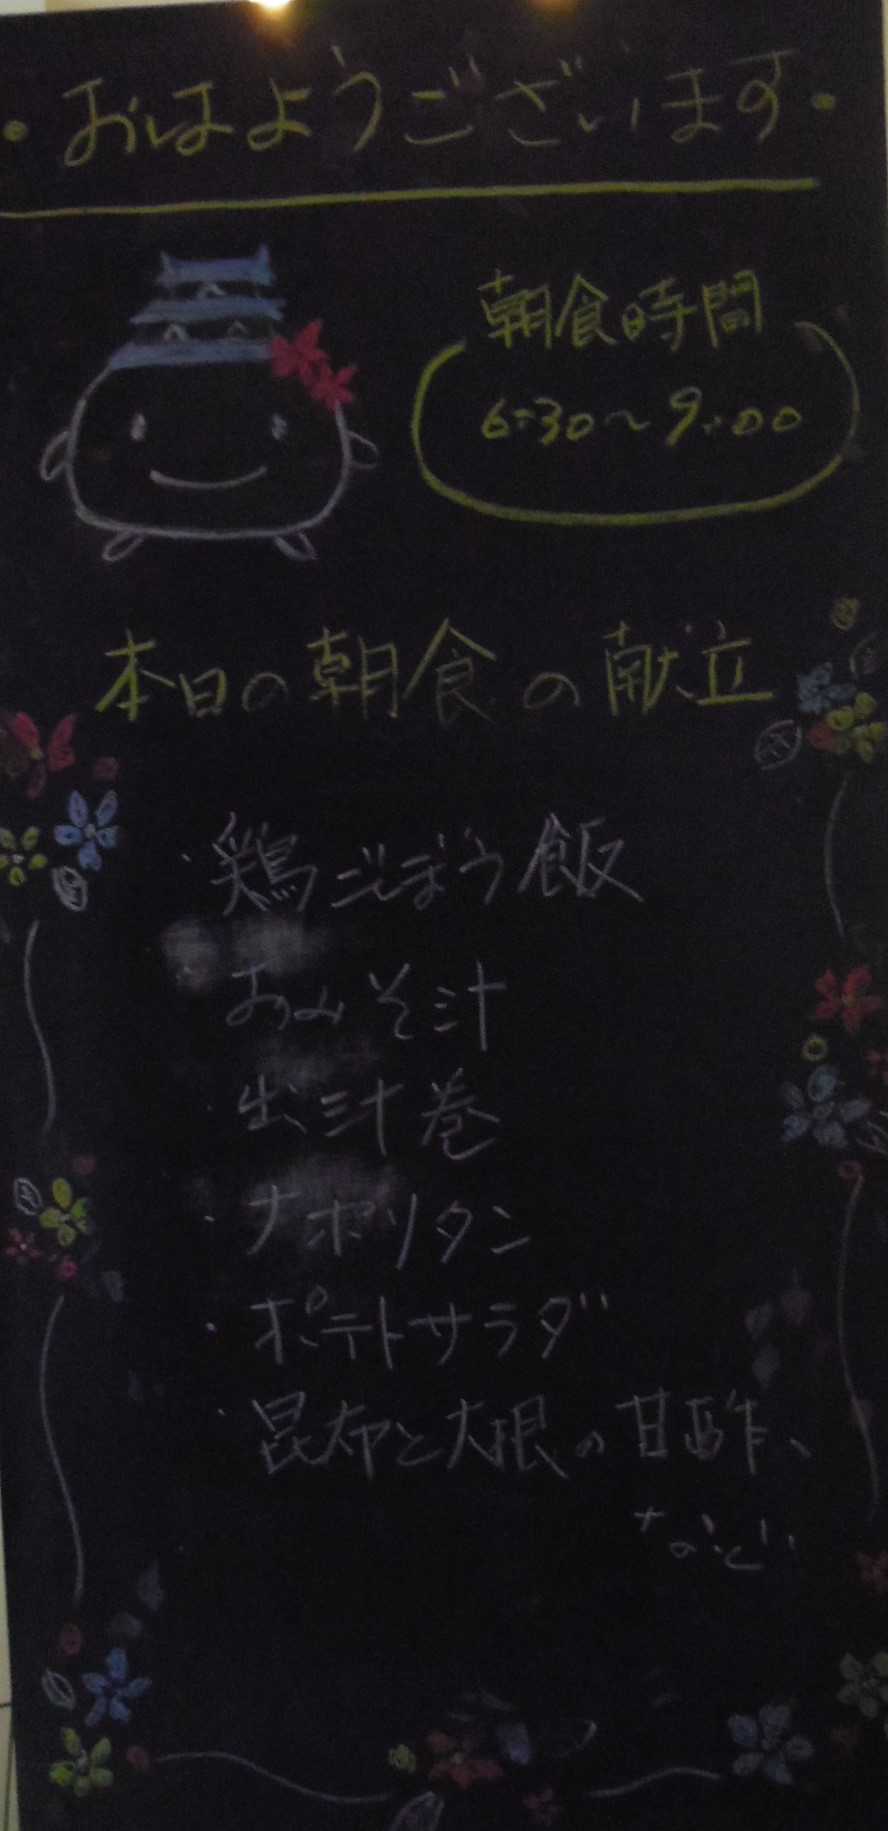 ・おはようございます・
朝食時間
6:30〜9:00
本日の朝食の献立
・鶏ごぼう飯
おみそ汁
・出汁巻
・ナポリタン
・ポテトサラダ
・昆布と大根の甘酢、
など